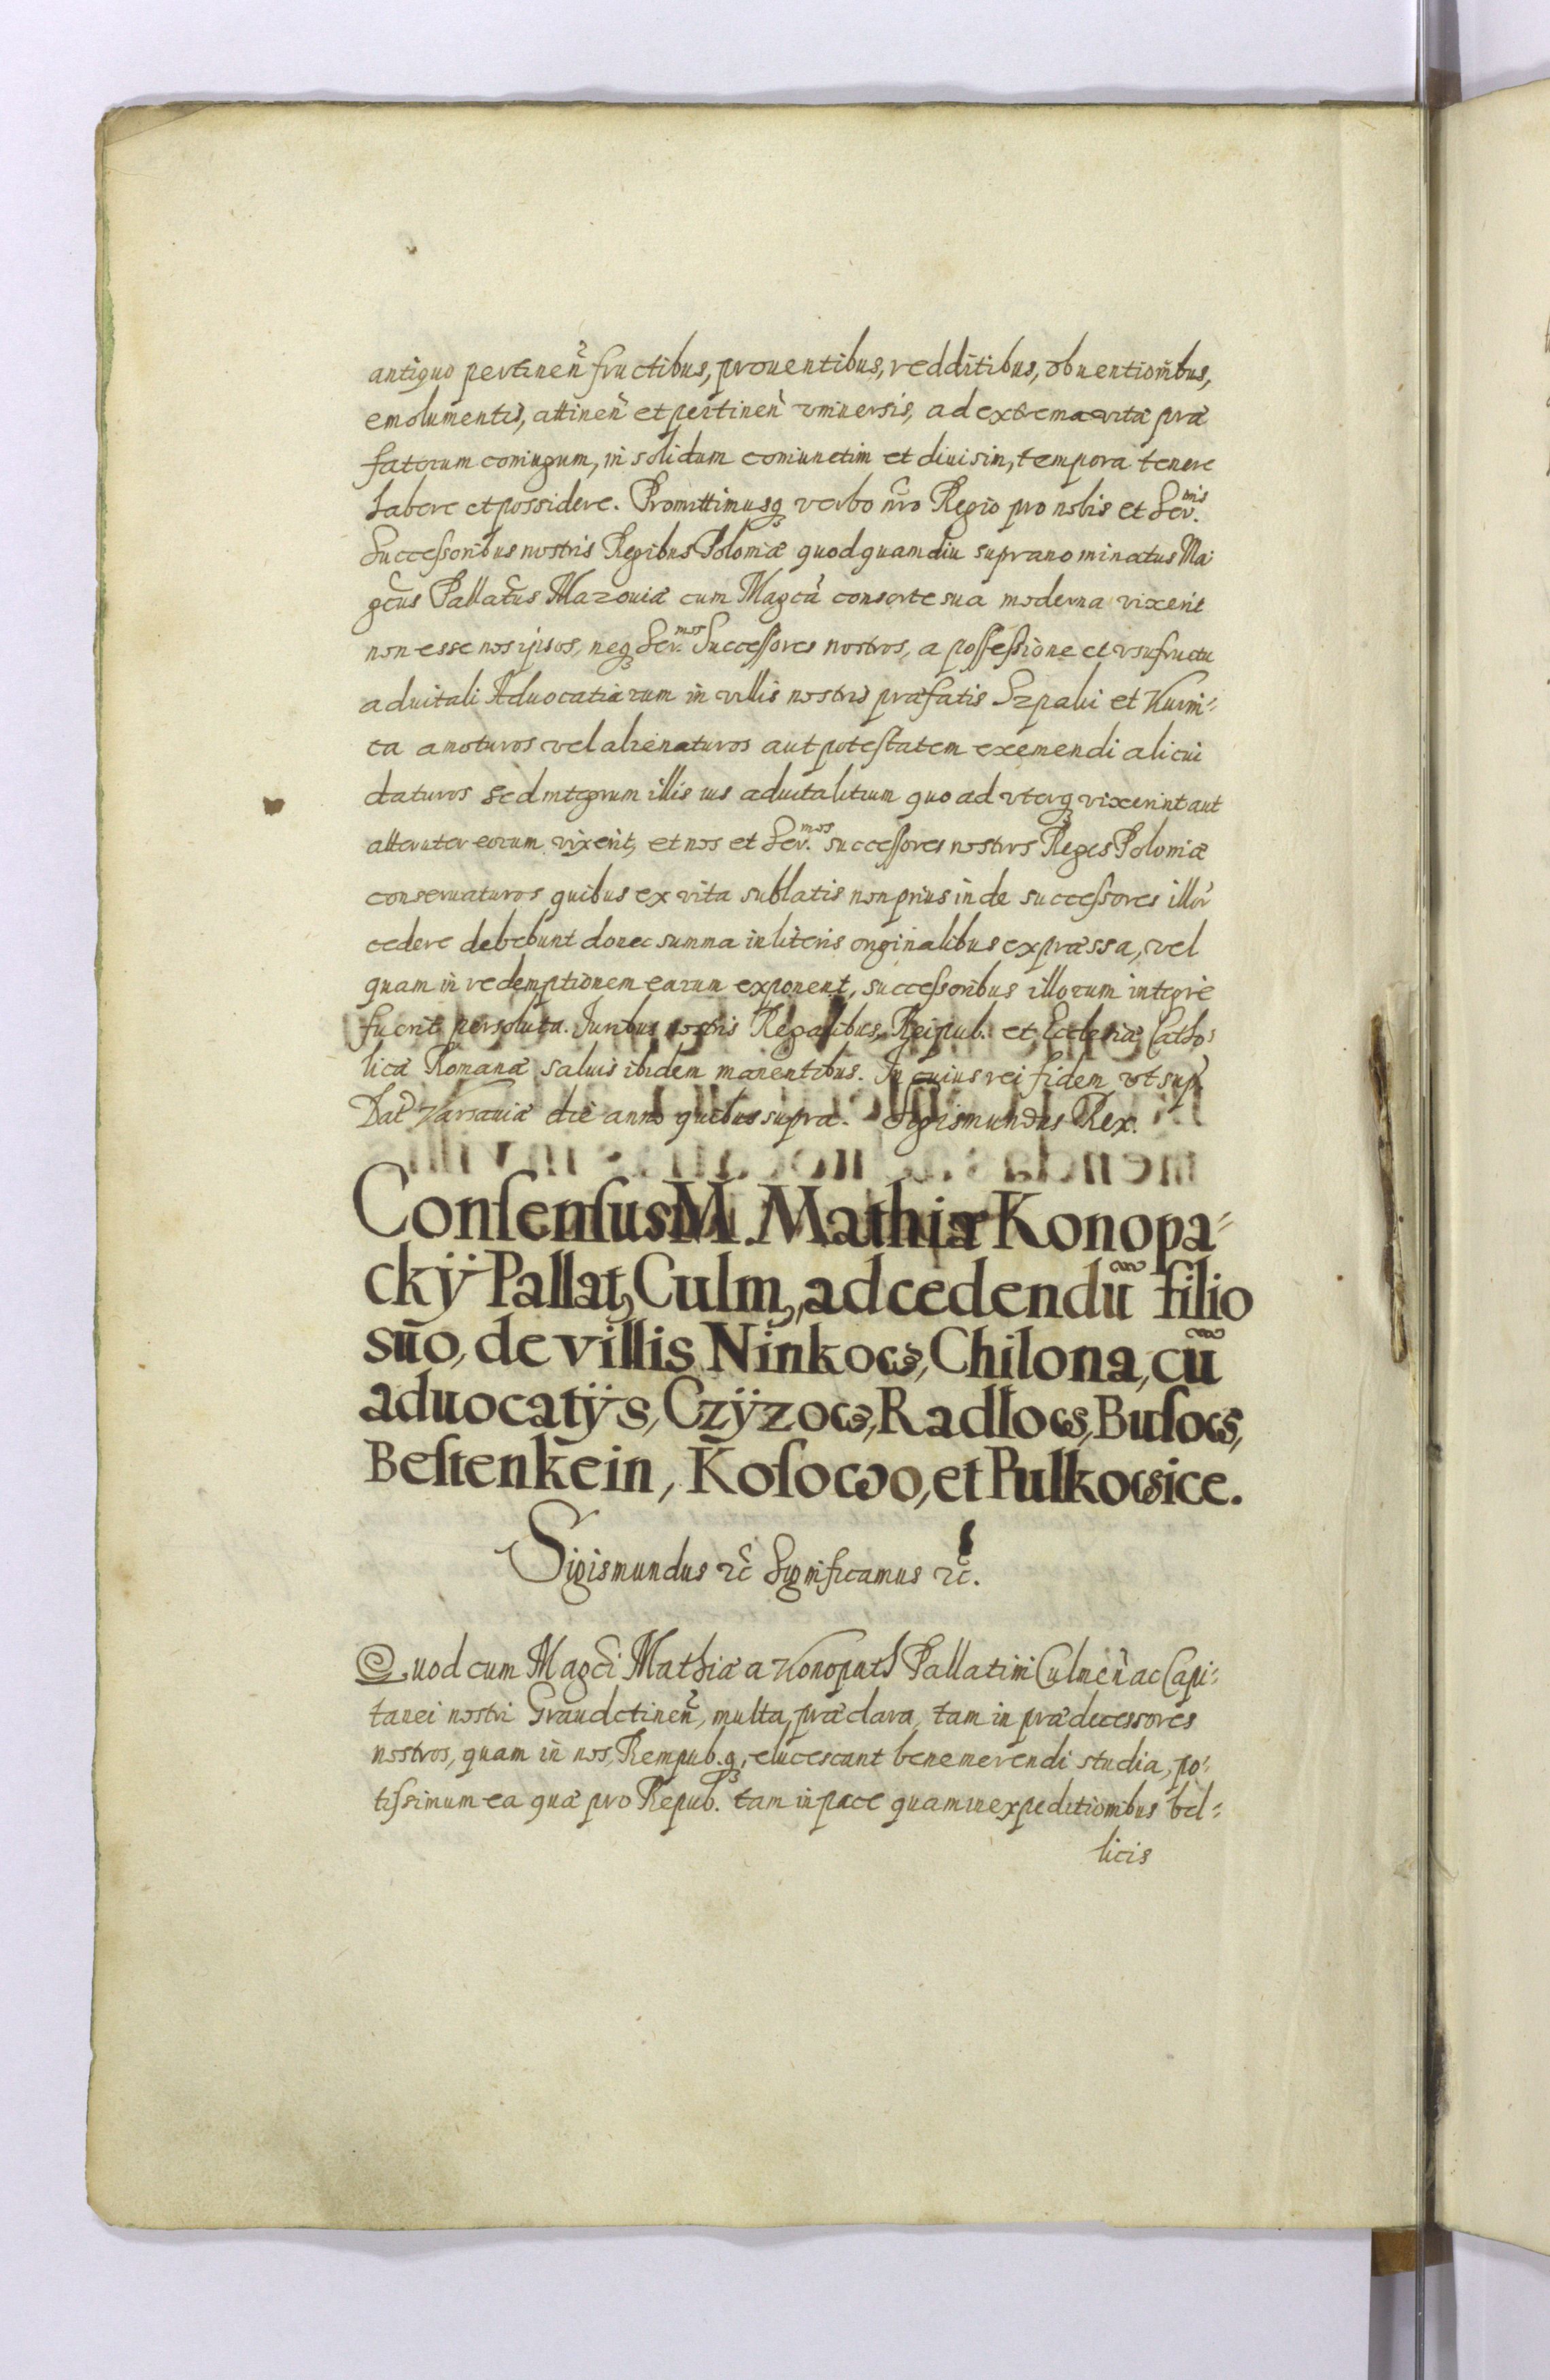 antiquo pertineñ fructibus, prouentibus, redditibus, obuentionibus,
emolumentis, attineñ et pertineñ vniuersis, ad extrema vitæ præ
fatorum coniugum, in solidum coniunctim et diuisim, tempora tenere
habere et possidere. Promittimusq verbo nro Regio pro nobis et Ser.mis
Successoribus nostris Regibus Poloniæ quod quamdiu supranominatus Ma:
gcus Pallatus Mazouiæ cum Magca consorte sua moderna vixerit
non esse nos ipsos, neq Ser.mos Successores nostros, a possessione et vsufructu
aduitali Aduocatiarum in villis nostris præfatis Szpaki et Kurni=
ca amoturos vel alienaturos aut potestatem exemendi alicui
daturos sed integrum illis ius aduitalitium quo ad vterq vixerint aut
alteruter eorum vixerit, et nos et Ser.mos successores nostros Reges Poloniæ
conseruaturos quibus ex vita sublatis non prius inde successores illor
cedere debebunt donec summa in literis originalibus expræssa, vel
quam in redemptionem earum exponent, successoribus illorum integre
fuerit persoluta. Iuribus nostris Regalibus, Reipub. et Ecclesiæ Catho=
licæ Romanæ saluis ibidem manentibus. In cuius rei fidem vt sup.
Dat Varsauiæ die anno quibus supra. Sigismundus Rex.
Consensus M. Mathiæ Konopa=
ckÿ Pallat, Culm, ad cedendū filio
suo, de villis Ninkow, Chilona, cū
aduocatÿs, Czÿzow, Radłow, Busow,
Bestenkein, Kosowo, et Pulkowice.
Sigismundus rc̃ Significamus rc̃.
Quod cum Magci Mathiæ a Konopath Pallatini Culmeñ ac Capi:
tanei nostri Graudctineñ, multa, præclara, tam in prædecessores
nostros, quam in nos, Rempub.q, elucescant benemerendi studia, po:
tissimum ea quæ pro Repub. tam in pace quam in expeditionibus bel=
licis